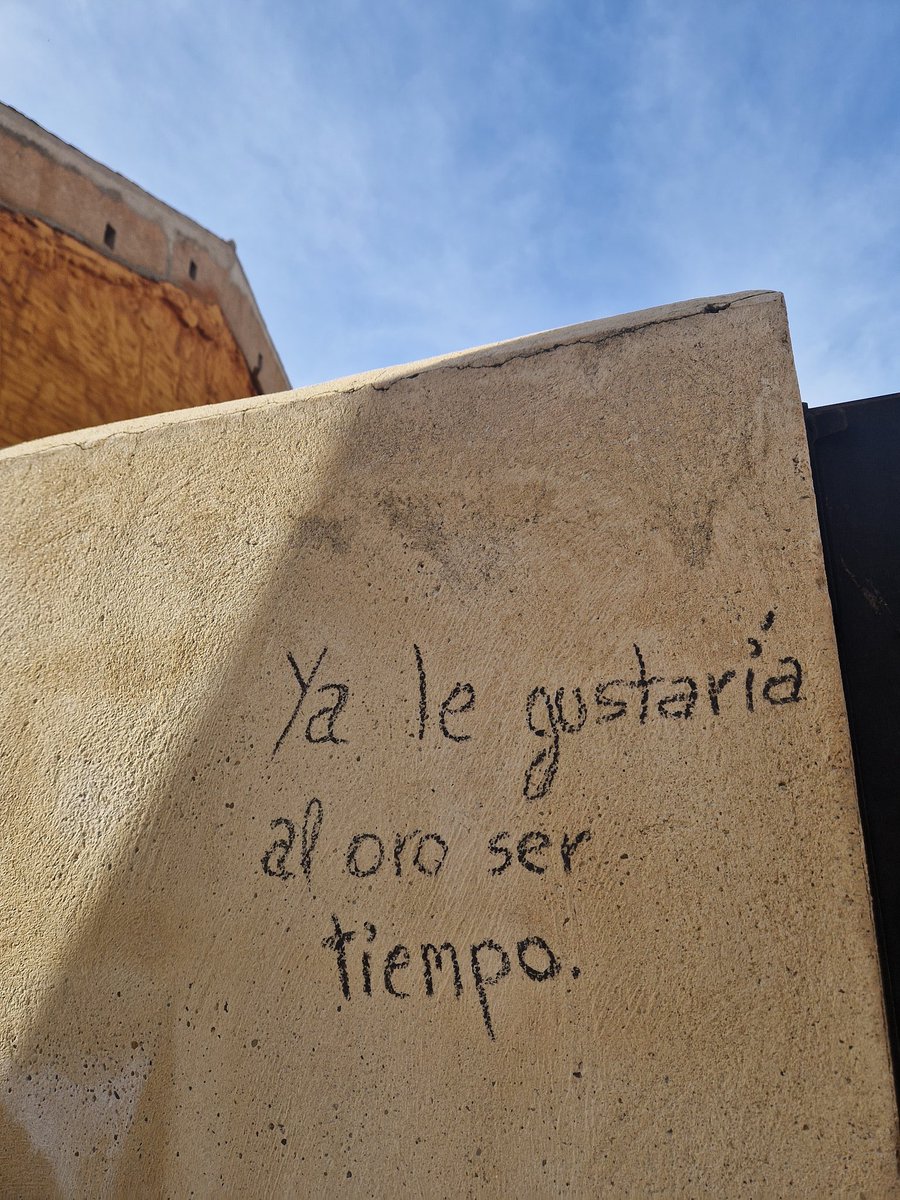 Ya le gustaría
al oro ser
tiempo.